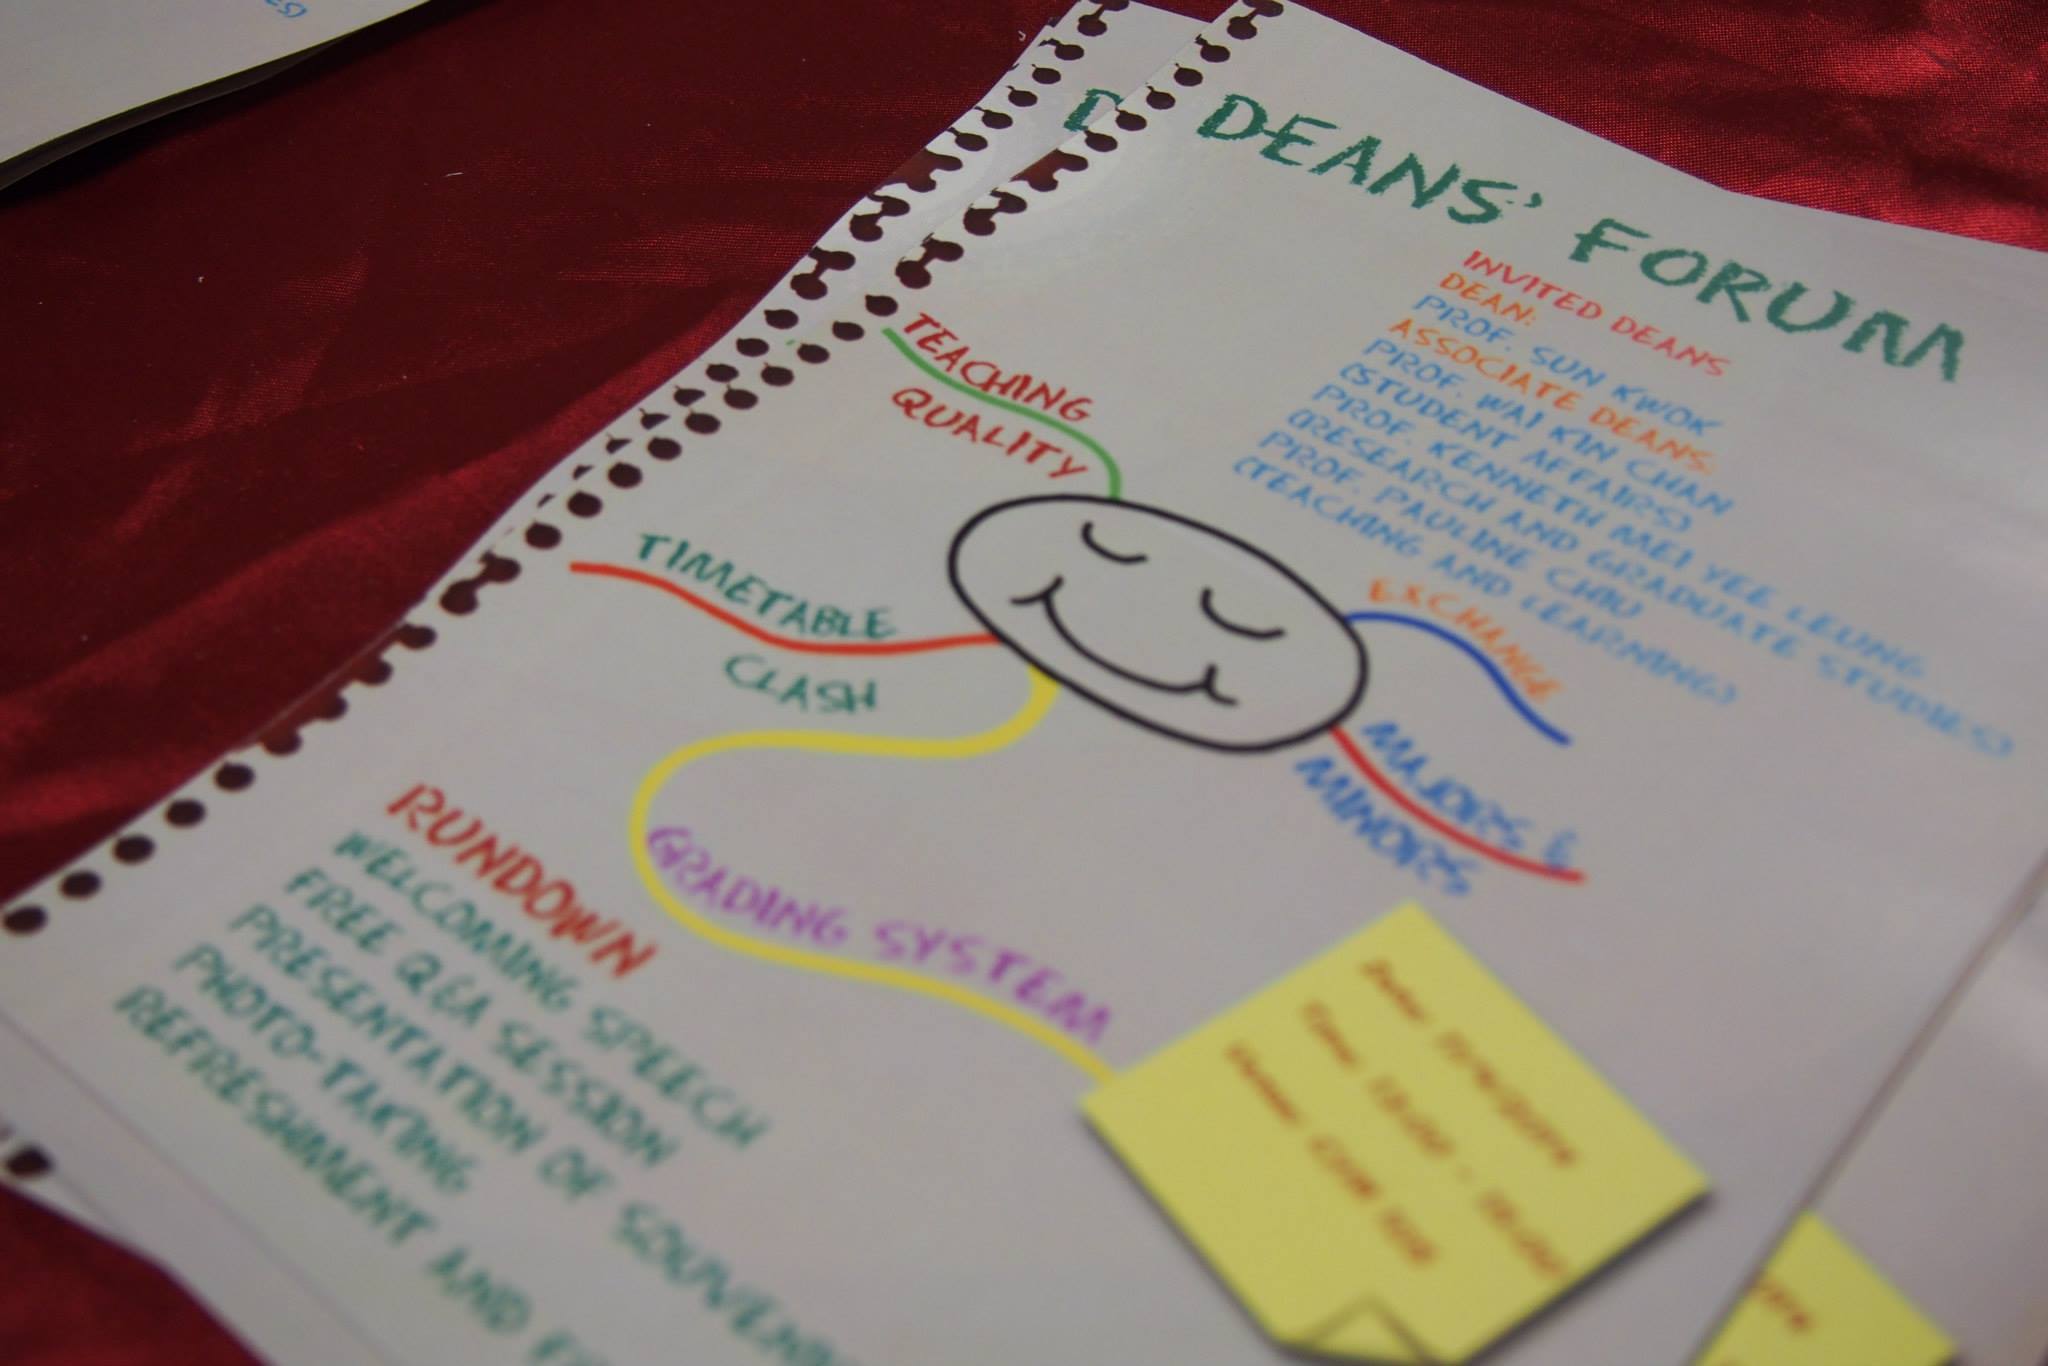 DEANS' FORUM
INVITED DEANS
DEAN:
PROF. SUN KWOK
ASSOCIATE DEANS:
PROF. WAI KIN CHAN
(STUDENT AFFAIRS)
PROF. KENNETH MEI YEE LEUNG
(RESEARCH AND GRADUATE STUDIES)
PROF. PAULINE CHIU
(TEACHING AND LEARNING)
TEACHING
QUALITY
TIMETABLE
CLASH
EXCHANGE
MAJORS &
MINORS
GRADING SYSTEM
RUNDOWN
WELCOMING SPEECH
FREE Q&A SESSION
PRESENTATION OF
PHOTO-TAKING
REFRESHMENT AND
Date:
Time:
Venue:
D